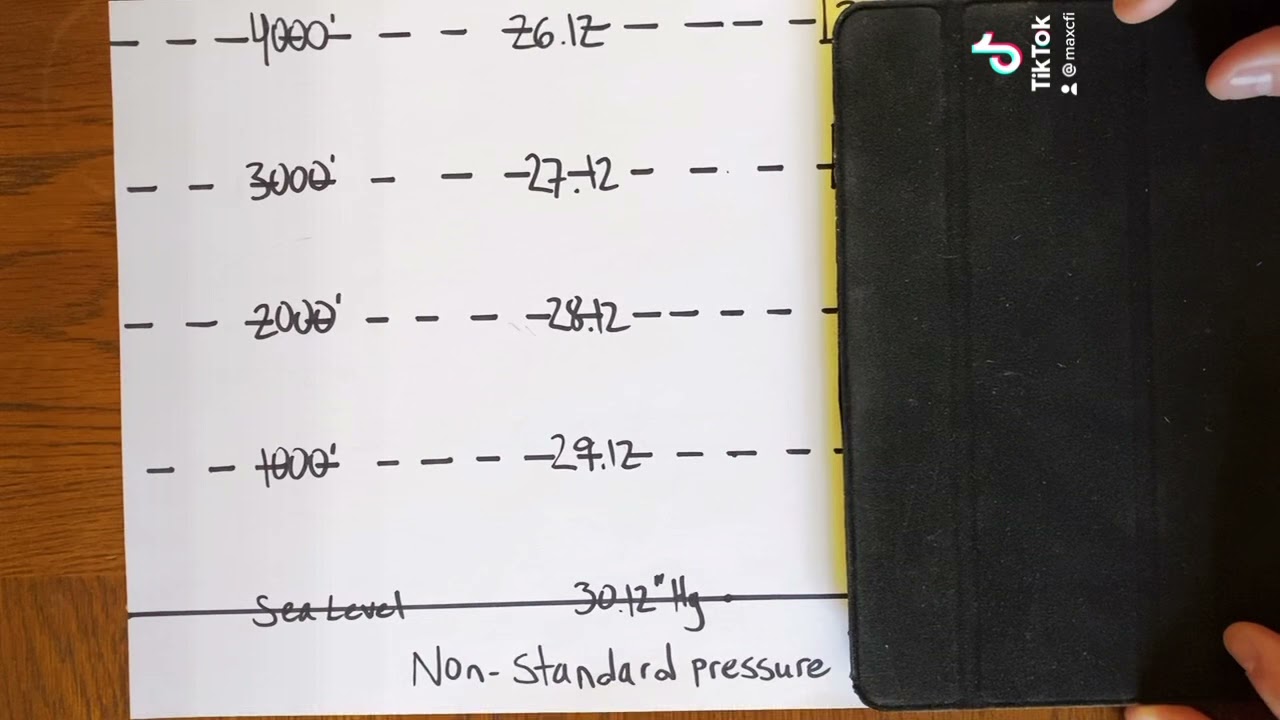 4000' 26.12
3000' 27.12
2000' 28.12
1000' 29.12
Sea Level 30.12" Hg
Non-Standard pressure
TikTok
@maxcfi